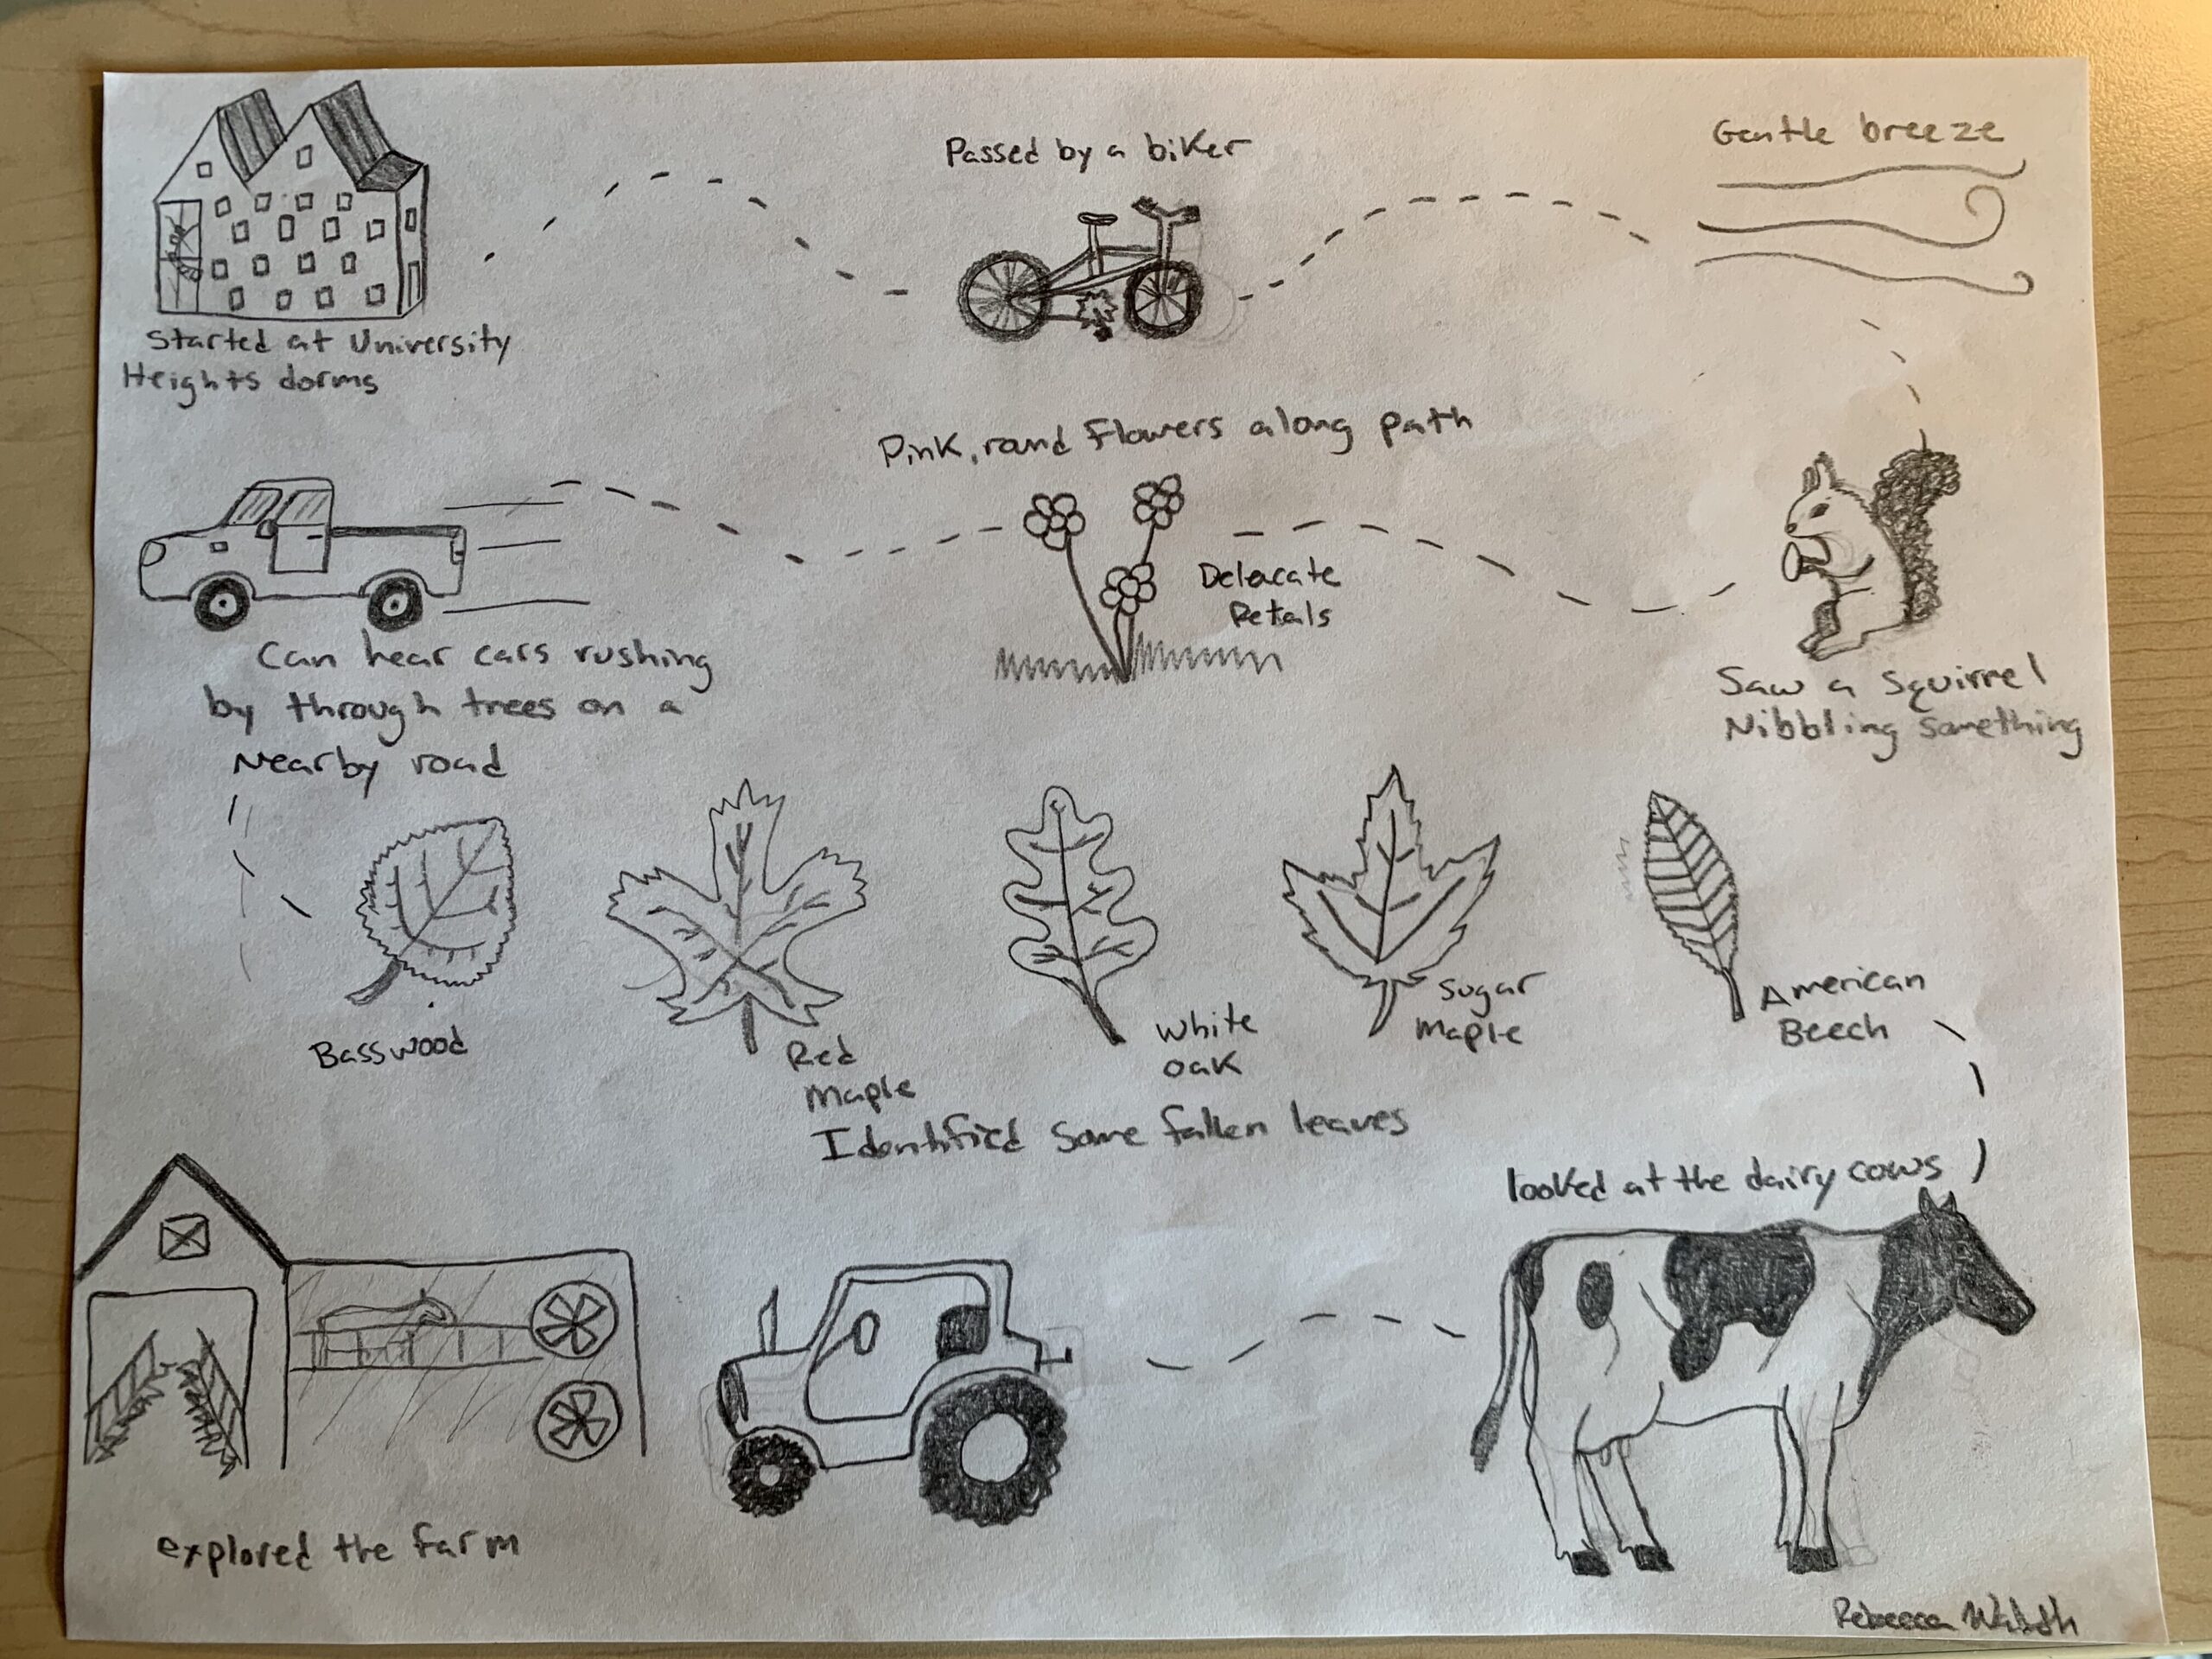 Started at University
Heights dorms
Passed by a biker
Gentle breeze
Saw a squirrel
Nibbling something
Pink, round flowers along path
Delacate
Petals
Can hear cars rushing
by through trees on a
Nearby road
Basswood
Red
Maple
White
oak
Sugar
Maple
American
Beech
Identified some fallen leaves
looked at the dairy cows
explored the farm
Rebecca